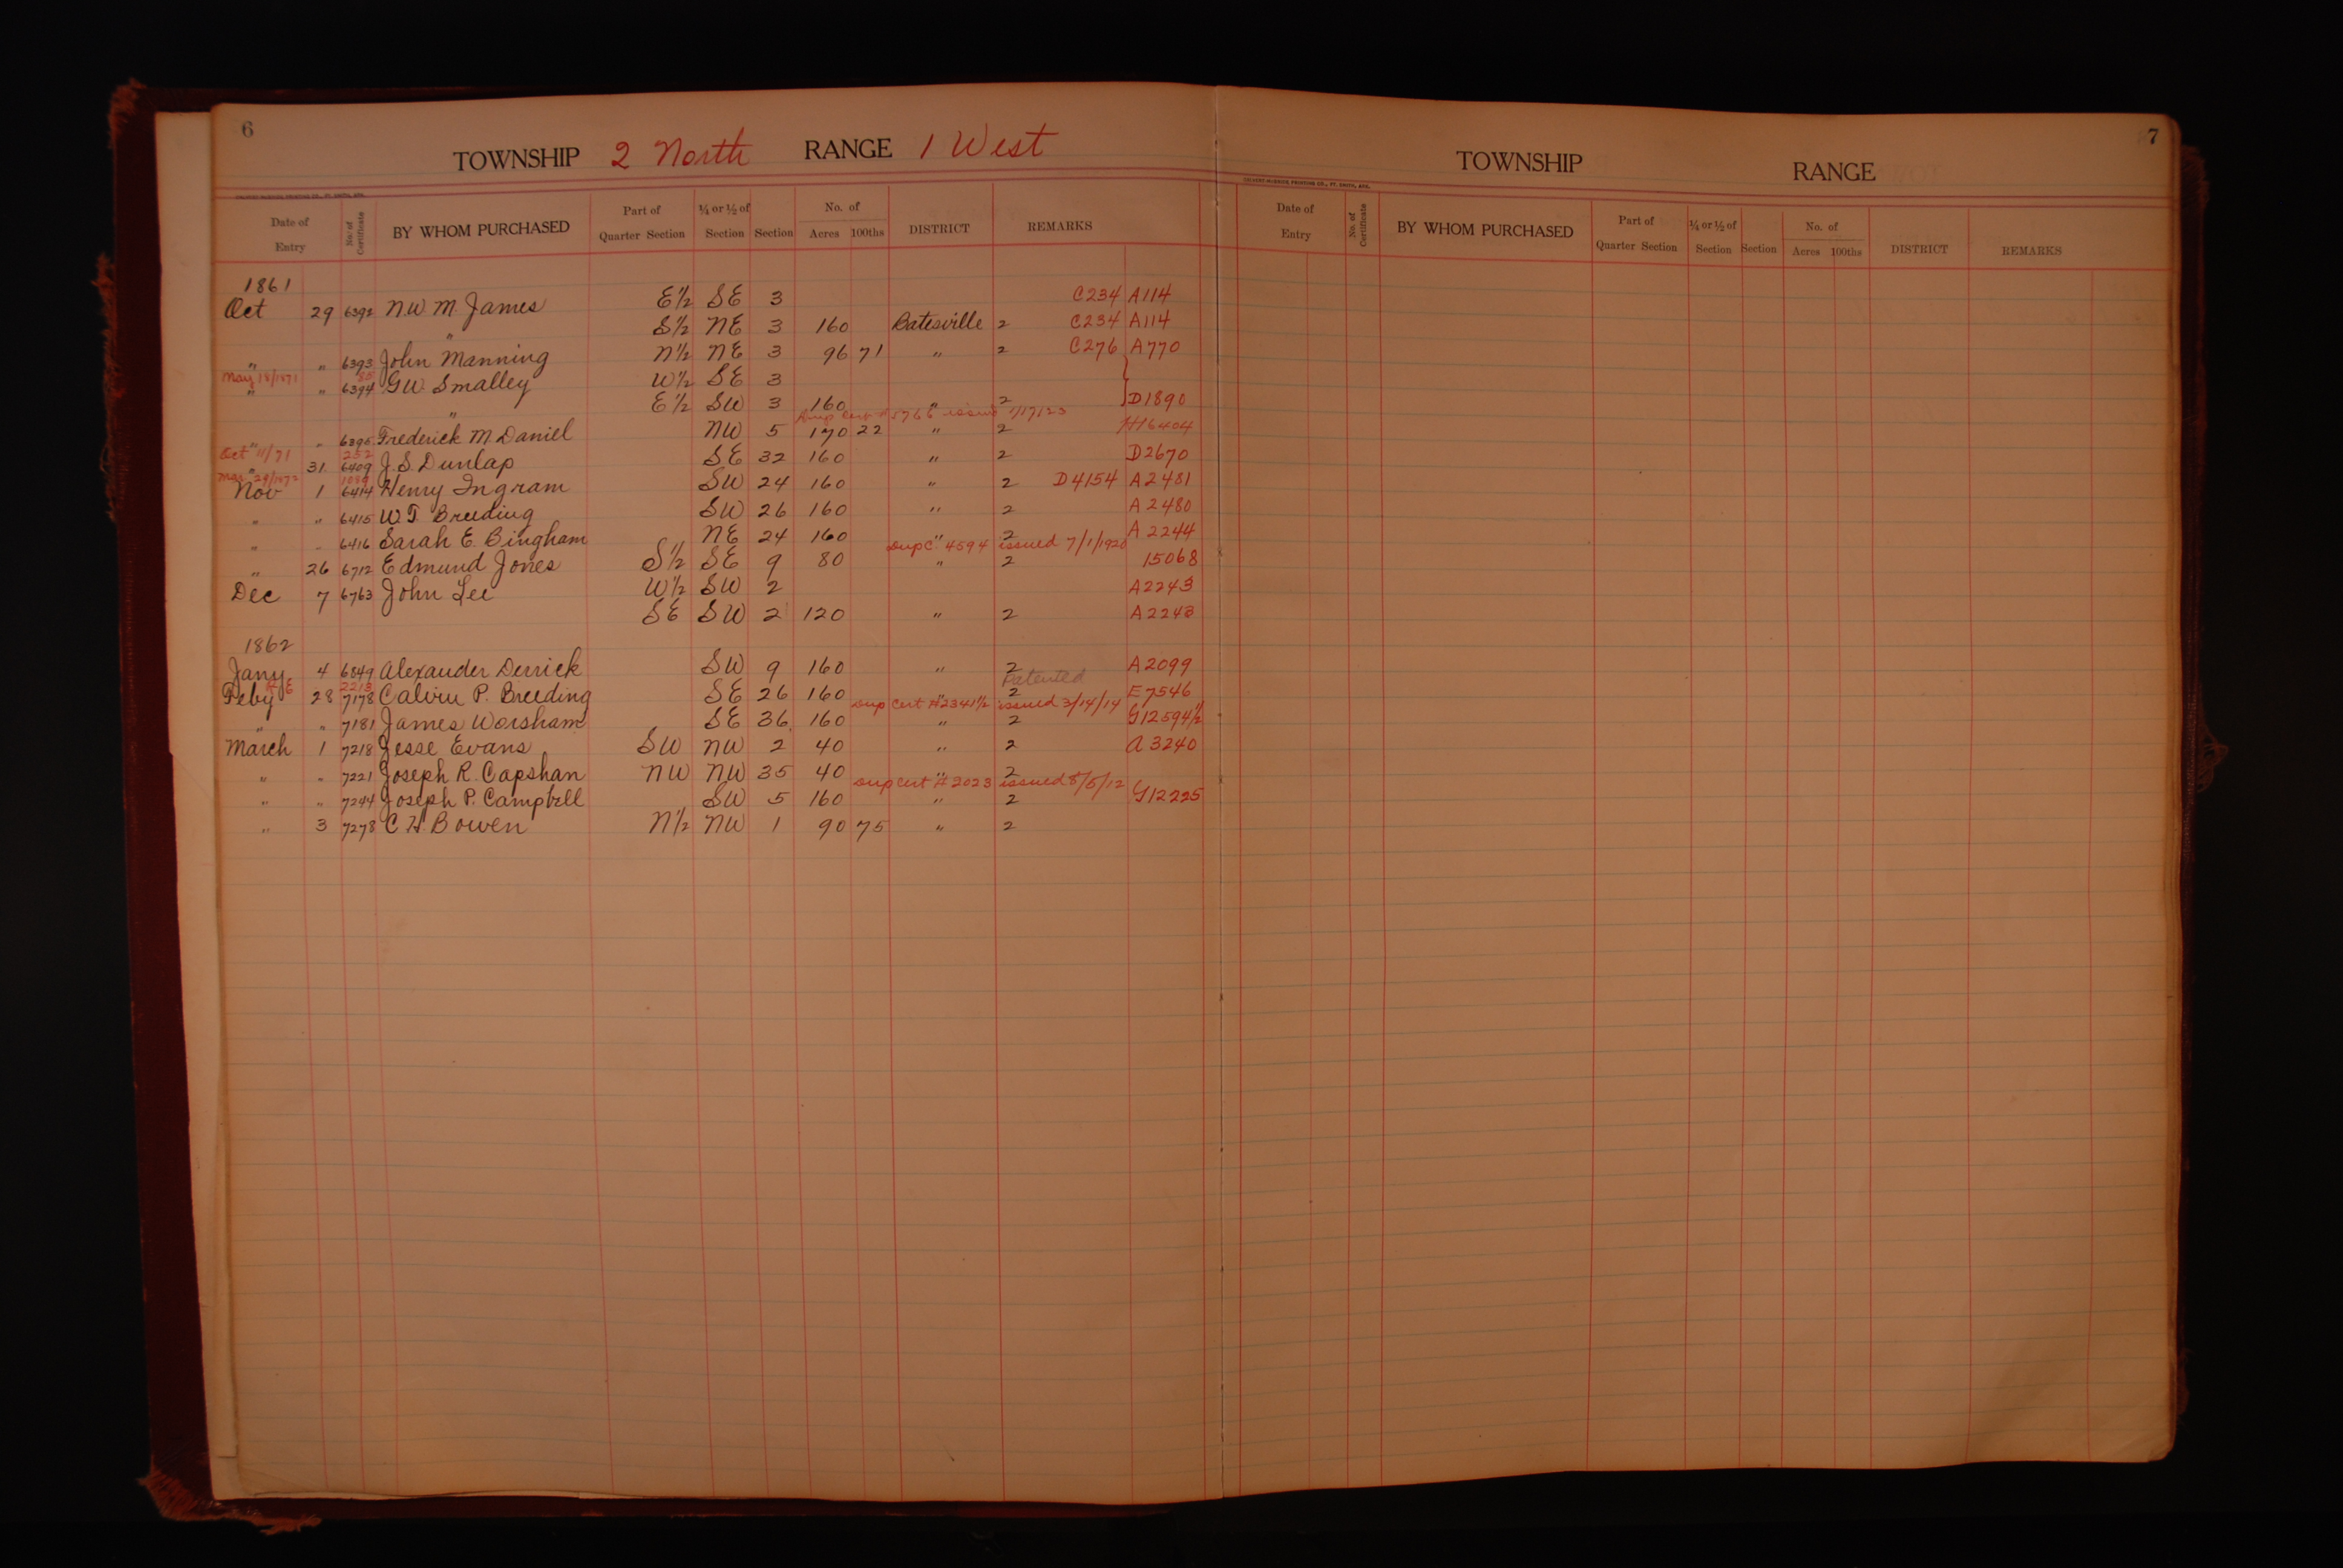 6
TOWNSHIP 2 North RANGE 1 West
CALVERT-McBRIDE PRINTING CO., FT. SMITH, ARK.
Date of Entry No. of Certificate BY WHOM PURCHASED Part of Quarter Section ¼ or ½ of Section Section No. of Acres 100ths DISTRICT REMARKS
1861
Oct 29 6392 N.W. M. James E½ SE 3 C234 A114
" S½ NE 3 160 Batesville 2 C234 A114
" " 6393 John Manning N½ NE 3 96 71 " 2 C276 A770
May 18/1871 85
" " 6394 G.W. Smalley W½ SE 3
" E½ SW 3 160 " 2 D1890
Dup Cert # 5766 issued 1/17/23
" " 6395 Frederick M. Daniel NW 5 170 22 " 2 H16404
Oct 11/71 252
" 31 6409 J.S. Dunlap SE 32 160 " 2 D2670
Mar 29/1872 1089
Nov 1 6414 Henry Ingram SW 24 160 " 2 D4154 A2481
" " 6415 W.T. Breeding SW 26 160 " 2 A2480
" " 6416 Sarah E. Bingham NE 24 160 " 2 A2244
Dup C. 4594 issued 7/1/1920
" 26 6712 Edmund Jones S½ SE 9 80 " 2 15068
Dec 7 6763 John Lee W½ SW 2 A2243
SE SW 2 120 " 2 A2243
1862
Jany 4 6849 Alexander Derrick SW 9 160 " 2 A2099
R E 2213 Patented
Feby 28 7178 Calvin P. Breeding SE 26 160 " 2 E7546
Dup Cert #2341½ issued 3/14/14
" " 7181 James Worsham SE 36 160 " 2 G12594½
March 1 7218 Jesse Evans SW NW 2 40 " 2 A3240
" " 7221 Joseph R. Capshan NW NW 35 40 " 2
Dup Cert #2023 issued 8/5/12
" " 7244 Joseph P. Campbell SW 5 160 " 2 G12225
" 3 7278 C.H. Bowen N½ NW 1 90 75 " 2
7
TOWNSHIP RANGE
CALVERT-McBRIDE PRINTING CO., FT. SMITH, ARK.
Date of Entry No. of Certificate BY WHOM PURCHASED Part of Quarter Section ¼ or ½ of Section Section No. of Acres 100ths DISTRICT REMARKS